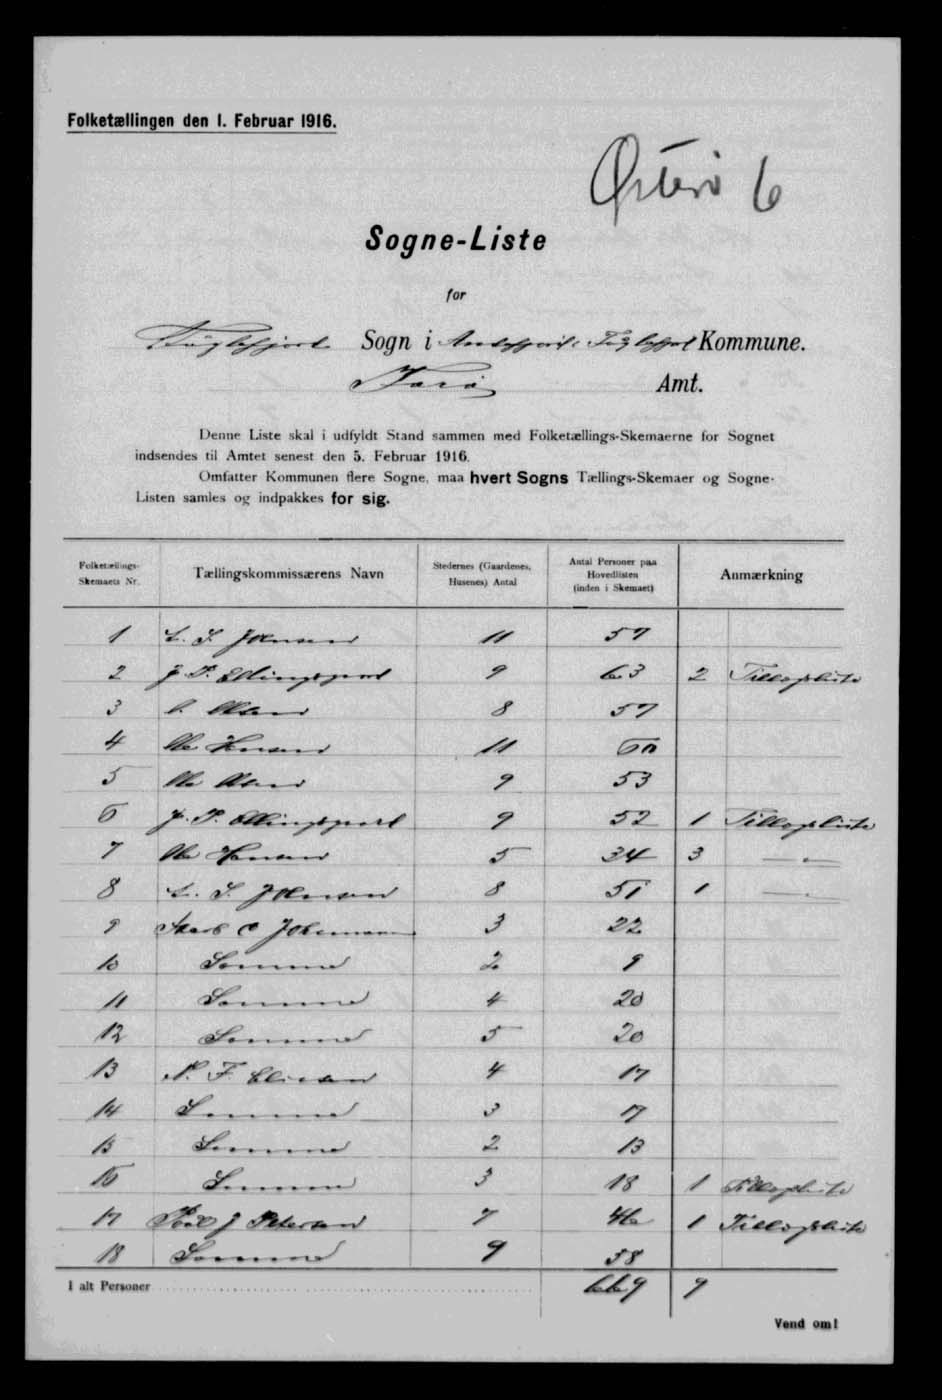 Folketællingen den 1. Februar 1916.
Østerø 6
Sogne-Liste
for
Fuglefjord Sogn i Andefjord, Fuglefjord Kommune.
Færø Amt.
Denne Liste skal i udfyldt Stand sammen med Folketællings-Skemaerne for Sognet
indsendes til Amtet senest den 5. Februar 1916.
Omfatter Kommunen flere Sogne, maa hvert Sogns Tællings-Skemaer og Sogne-
Listen samles og indpakkes for sig.
Folketællings-Skemaets Nr. Tællingskommissærens Navn Stedernes (Gaardenes, Husenes) Antal Antal Personer paa Hovedlisten (inden i Skemaet) Anmærkning
1 S. Joensen 11 57
2 J. P. Ellingsgaard 9 63 2 Tillægsliste
3 8 57
4 Ole Hansen 11 60
5 Ole 9 53
6 J. P. Ellingsgaard 9 52 1 Tillægsliste
7 Ole Hansen 5 34 3 — " —
8 S. Joensen 8 51 1 — " —
9 Jacob C Johannesen 3 22
10 Samme 2 9
11 Samme 4 20
12 Samme 5 20
13 N. F. Eliesen 4 17
14 Samme 3 17
15 Samme 2 13
16 Samme 3 18 1 Tillægsliste
17 Poul J Petersen 7 46 1 Tillægsliste
18 Samme 9 58
I alt Personer 669 9
Vend om!